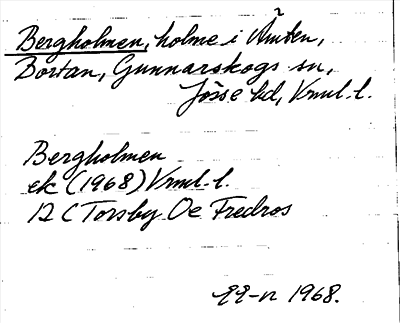 Bergholmen, holme i Ämten,
Bortan, Gunnarskogs sn,
Jösse hd, Vrml. l.
Bergholmen
ek (1968) Vrml. l.
12 C Torsby Öe Fredros
1968.